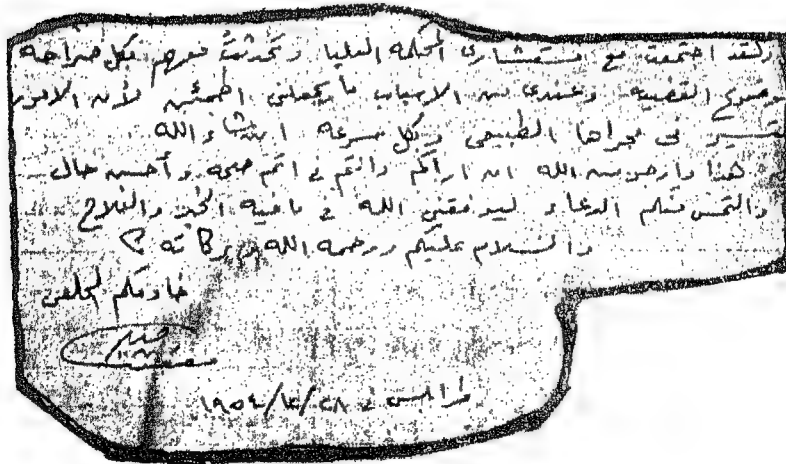 ولقد اجتمعت مع مستشارى المحكمة العليا وتحدثت معهم بكل صراحه
موضوع القضيه وعندى من الاسباب ما يجعلنى اطمئن لأن الامور
تسير فى مجراها الطبيعى وبكل سرعه انشاء الله
هذا وارجو من الله ان اراكم وانتم فى اتم صحه وأحسن حال
والتمس منكم الدعاء ليوفقنى الله فى ما فيه الخير والفلاح
والسلام عليكم ورحمه الله وبركاته
خادمكم المخلص
طرابلس فى ٢٨/٣/١٩٥٤